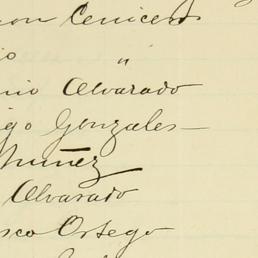 on Ceniceros
io "
nio Alvarado
igo Gonzales
Nuñez
Alvarado
sco Ortego